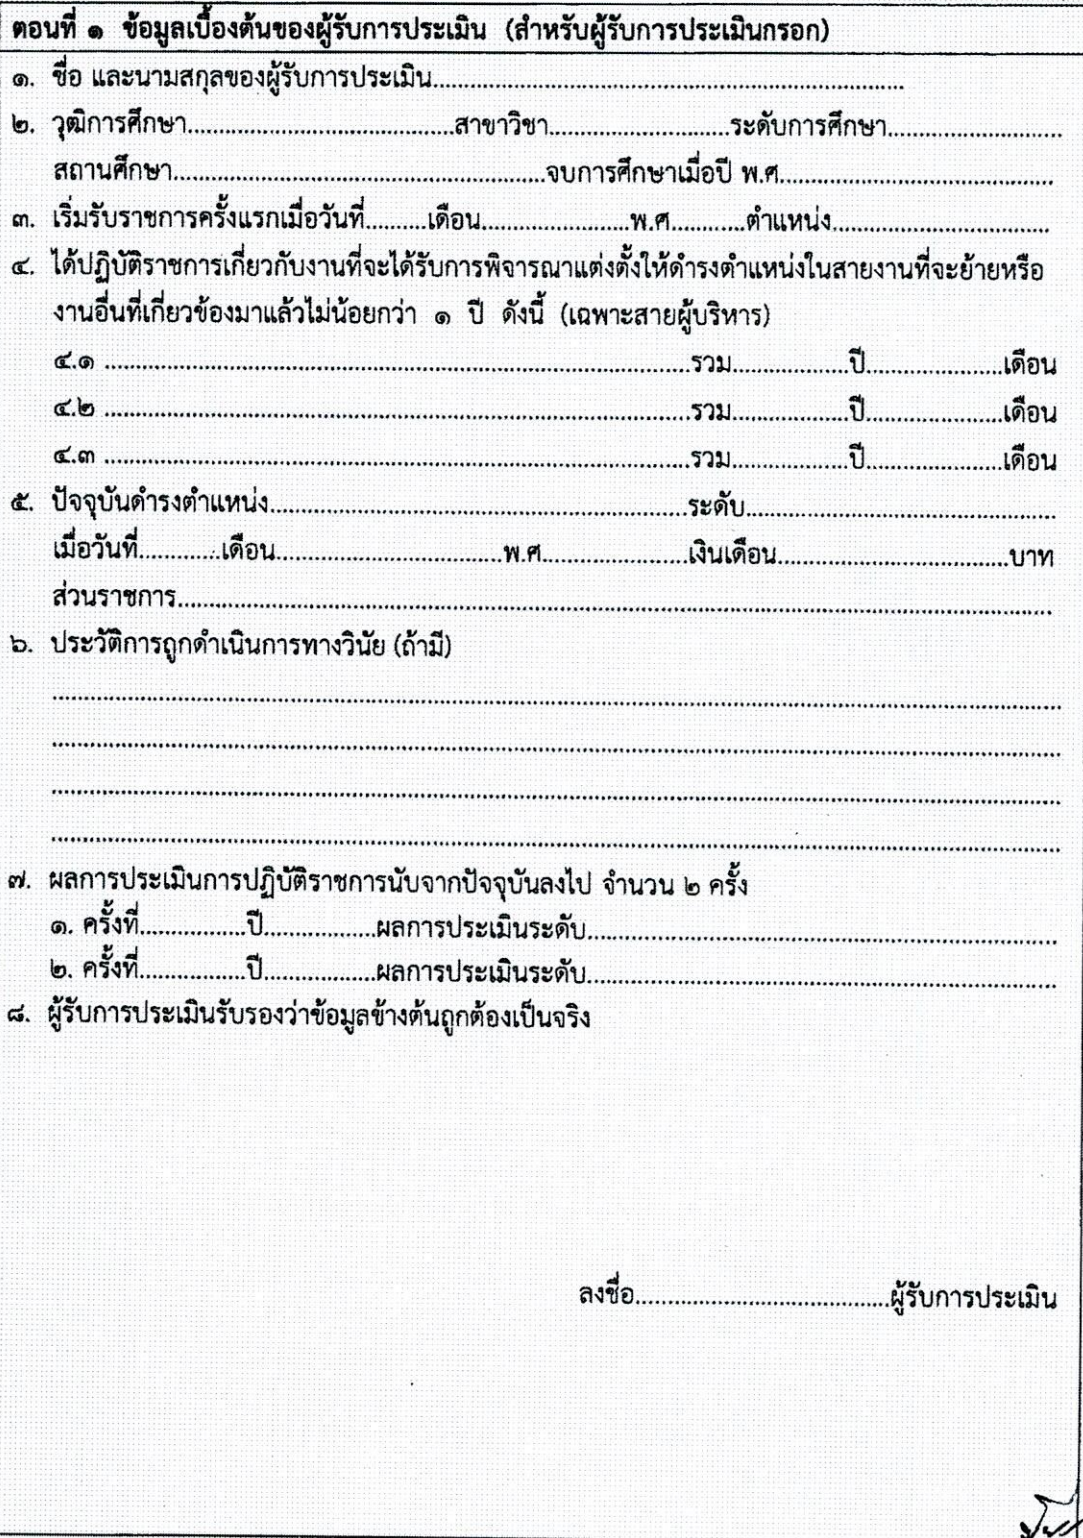 ตอนที่ ๑ ข้อมูลเบื้องต้นของผู้รับการประเมิน (สำหรับผู้รับการประเมินกรอก)
๑. ชื่อ และนามสกุลของผู้รับการประเมิน....................
๒. วุฒิการศึกษา....................สาขาวิชา....................ระดับการศึกษา....................
สถานศึกษา....................จบการศึกษาเมื่อปี พ.ศ.....................
๓. เริ่มรับราชการครั้งแรกเมื่อวันที่.........เดือน....................พ.ศ............ตำแหน่ง....................
๔. ได้ปฏิบัติราชการเกี่ยวกับงานที่จะได้รับการพิจารณาแต่งตั้งให้ดำรงตำแหน่งในสายงานที่จะย้ายหรือ
งานอื่นที่เกี่ยวข้องมาแล้วไม่น้อยกว่า ๑ ปี ดังนี้ (เฉพาะสายผู้บริหาร)
๔.๑ ....................รวม..................ปี....................เดือน
๔.๒ ....................รวม..................ปี....................เดือน
๔.๓ ....................รวม..................ปี....................เดือน
๕. ปัจจุบันดำรงตำแหน่ง....................ระดับ....................
เมื่อวันที่.............เดือน....................พ.ศ.....................เงินเดือน....................บาท
ส่วนราชการ....................
๖. ประวัติการถูกดำเนินการทางวินัย (ถ้ามี)
....................
....................
....................
....................
๗. ผลการประเมินการปฏิบัติราชการนับจากปัจจุบันลงไป จำนวน ๒ ครั้ง
๑. ครั้งที่................ปี.................ผลการประเมินระดับ....................
๒. ครั้งที่................ปี.................ผลการประเมินระดับ....................
๘. ผู้รับการประเมินรับรองว่าข้อมูลข้างต้นถูกต้องเป็นจริง
ลงชื่อ....................ผู้รับการประเมิน